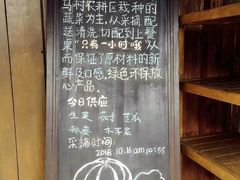 马村农耕区栽种的
蔬菜为主,从采摘配
送清洗.切配到上餐
桌"只有一小时"哦从
而保证了原材料的新
鲜及口感.绿色环保放
心产品。
今日供应
生菜 茄子 苦瓜
秋葵 木耳菜
采摘时间:
2016.10.16 am 10:55